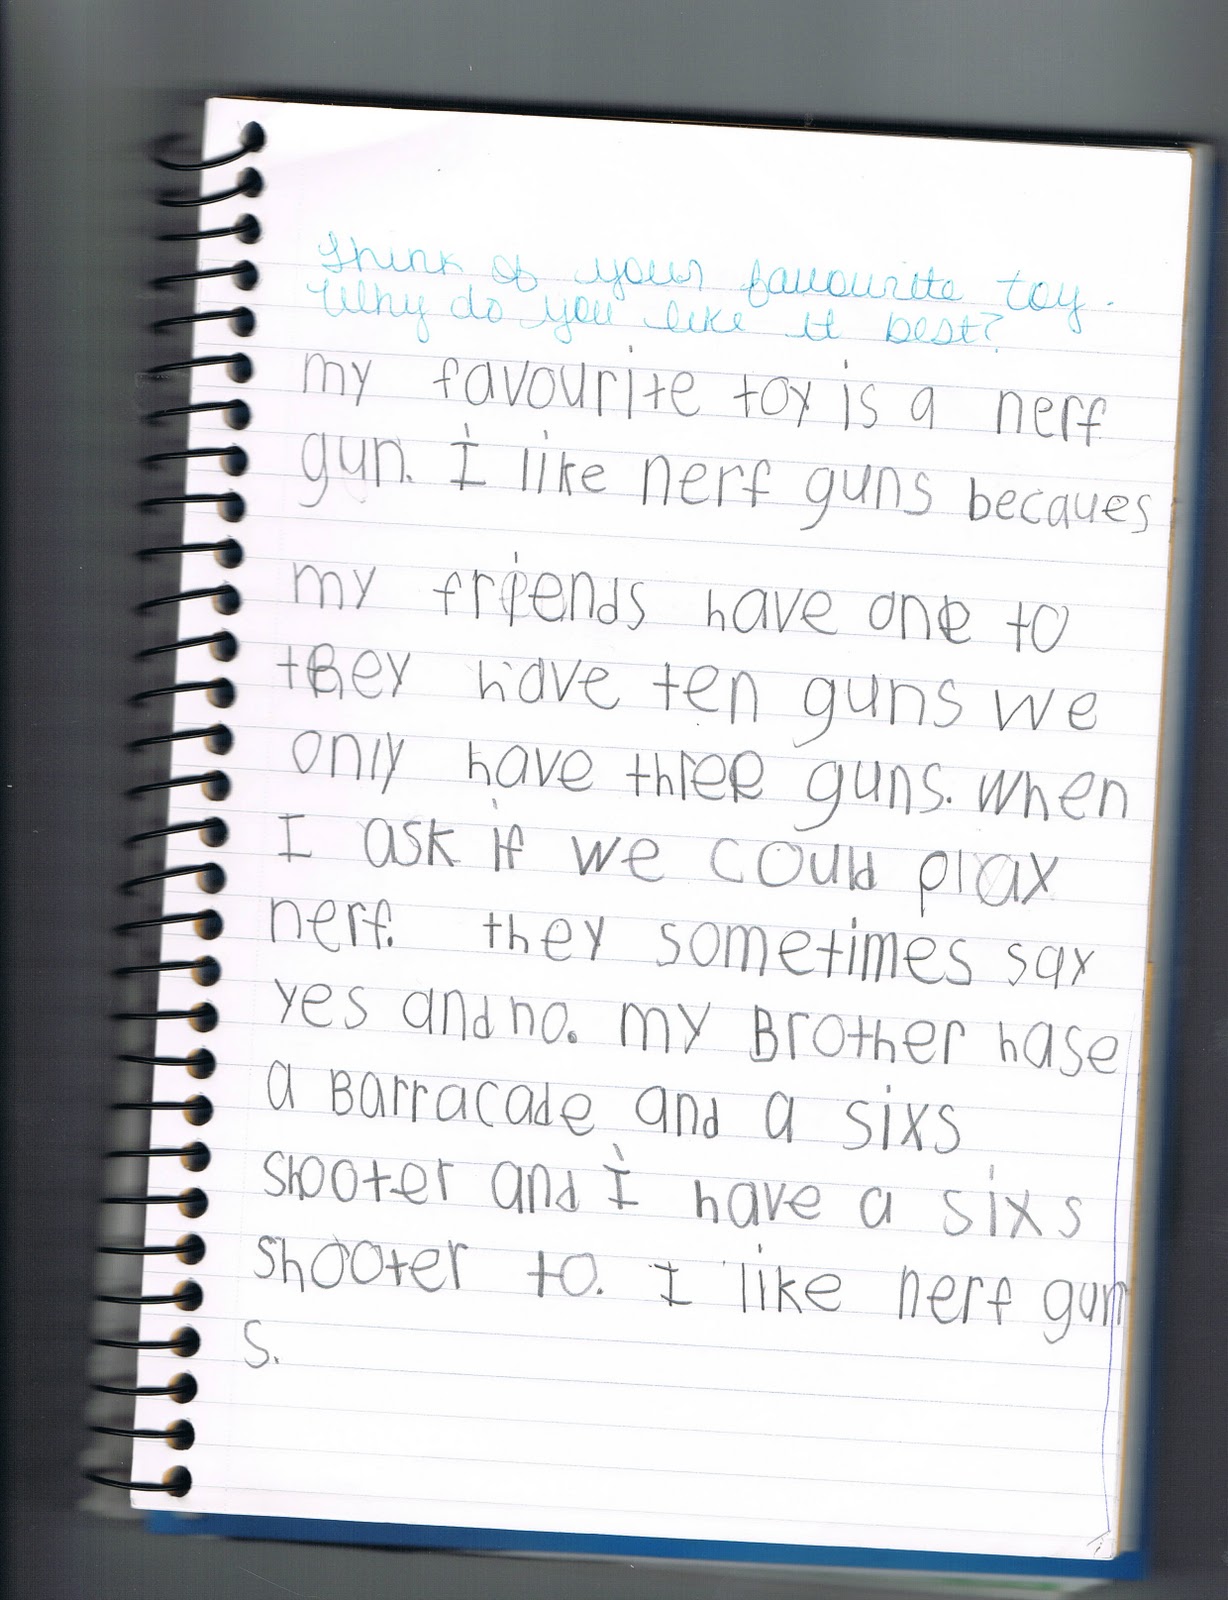 Think of your favourite toy.
Why do you like it best?
my favourite toy is a nerf
gun. I like nerf guns becaues
my friends have one to
they have ten guns we
only have three guns. when
I ask if we could play
nerf. they sometimes say
yes and no. my Brother hase
a Barracade and a sixs
shooter and I have a sixs
shooter to. I like nerf gun
s.